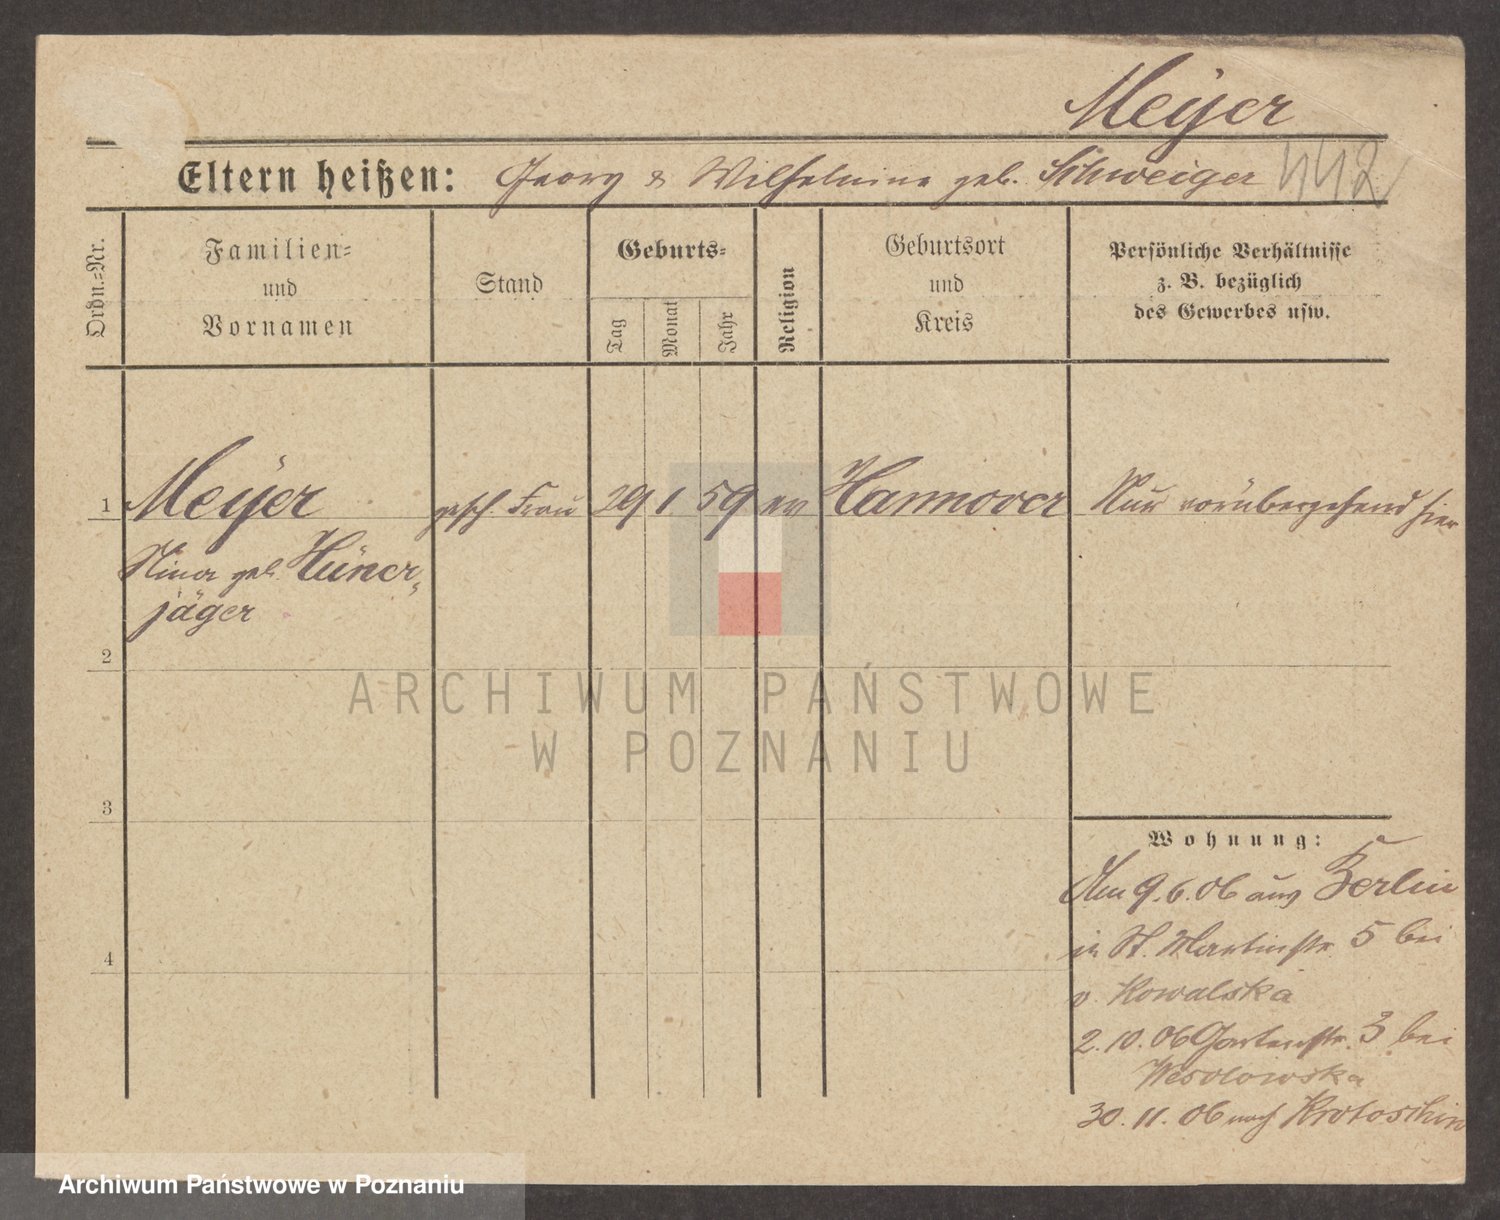 Meyer
Eltern heißen: Georg & Wilhelmine geb. Schweiger 442
Ordn.=Nr.
Familien=
und
Vornamen
Stand
Geburts=
Tag
Monat
Jahr
Religion
Geburtsort
und
Kreis
Persönliche Verhältnisse
z. B. bezüglich
des Gewerbes usw.
1 Meyer gesch. Frau 29 1 59 ev Hannover Nur vorübergehend hier
Nina geb. Hüner„
jäger
2
ARCHIWUM PAŃSTWOWE
W POZNANIU
3
Wohnung:
Am 9.6.06 aus Berlin
in St. Martinstr. 5 bei
v. Kowalska
4
2.10.06 Gartenstr. 3 bei
Wesolowska
30.11.06 nach Krotoschin
Archiwum Państwowe w Poznaniu